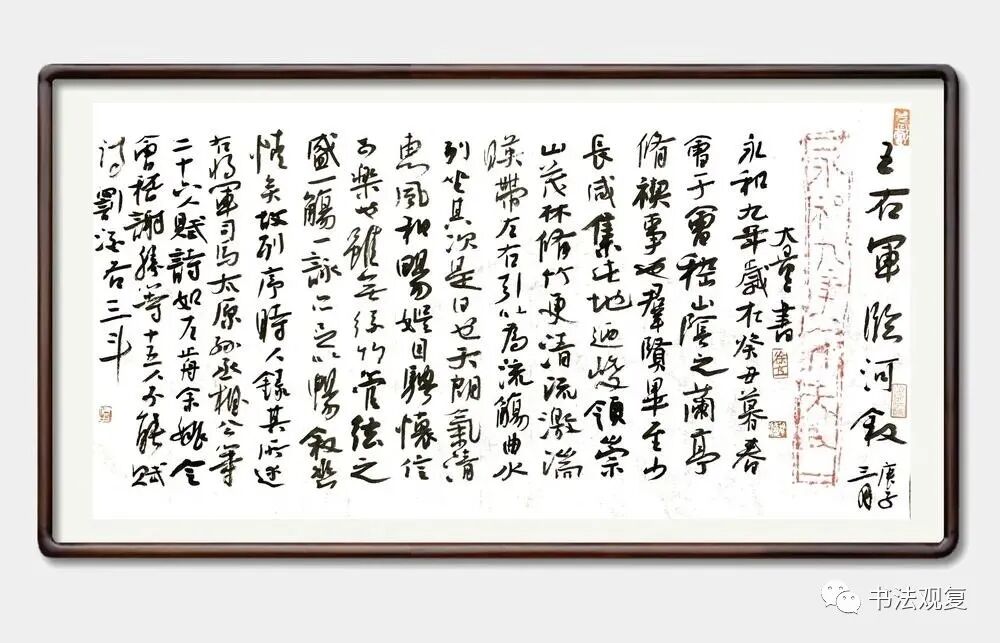 王右軍臨河叙
庚子
三月
永和九年歲在癸丑暮春
會于會稽山陰之蘭亭
脩禊事也羣賢畢至少
長咸集此地迺峻領崇
山茂林脩竹更清流激湍
暎帶左右引以為流觴曲水
列坐其次是日也天朗氣清
惠風和暢娛目騁懷信
可樂也雖無絲竹管弦之
盛一觴一詠亦足以暢叙幽
情矣故列序時人錄其所述
右將軍司馬太原孫丞相公等
二十六人賦詩如左前余姚令
會稽謝勝等十五人不能賦
詩罰酒各三斗
书法观复